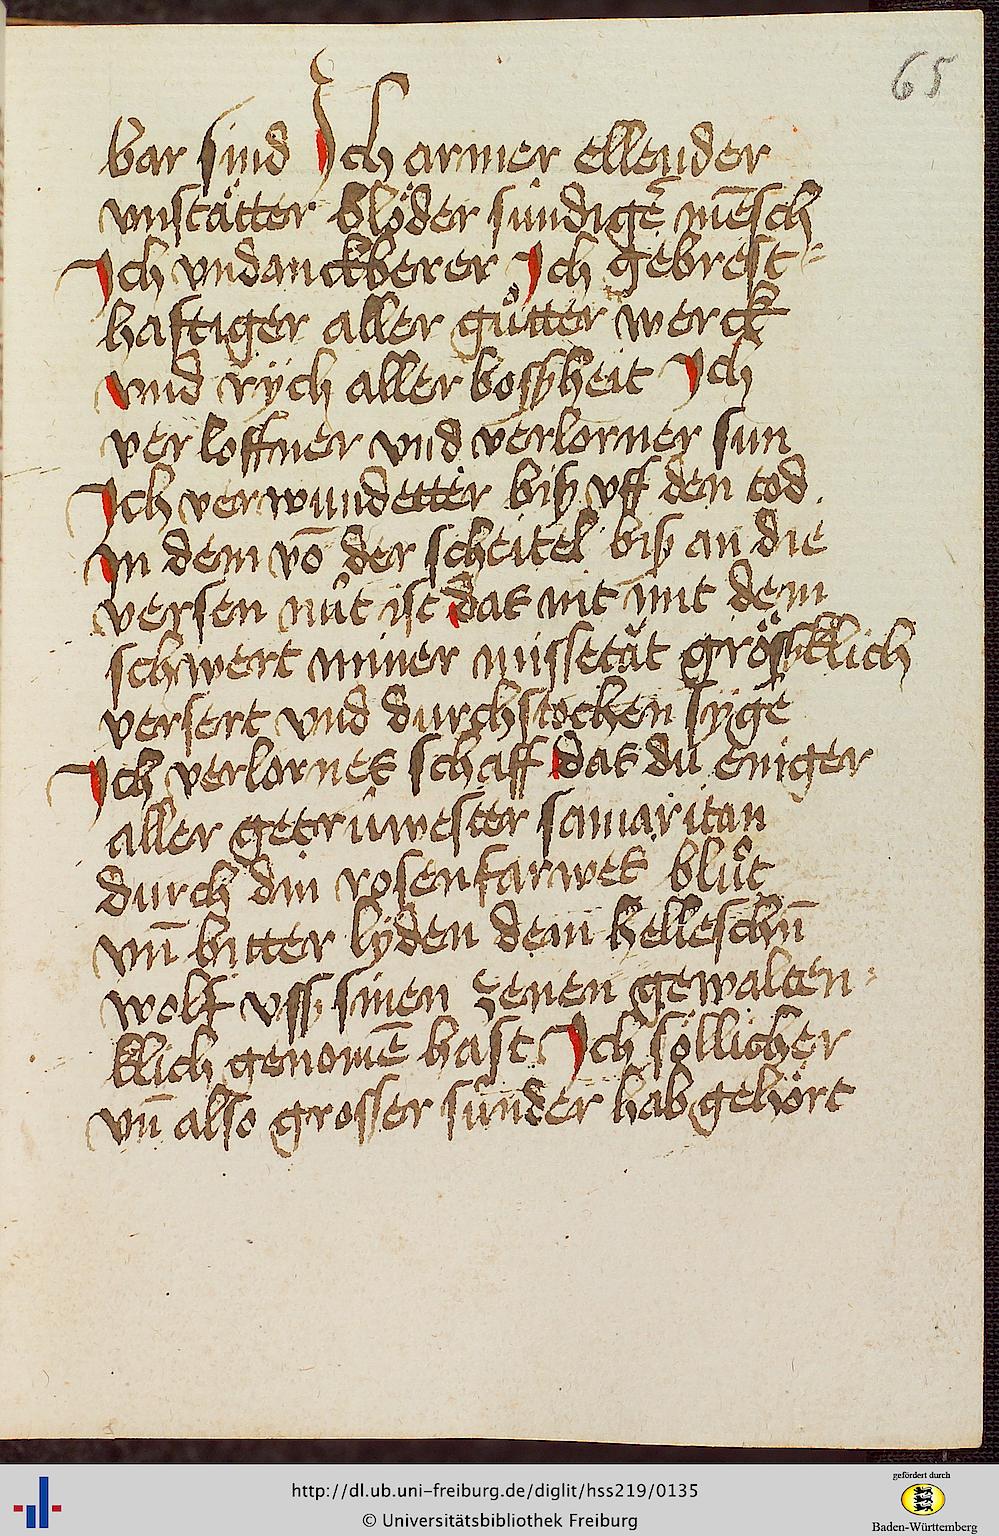 65
bar sind Ich armer ellender
vnstätter blöder sündigē mēsch
Ich vndanckberer Ich gebrest=
haftiger aller guͦtter werck
vnd rÿch aller bosßheit Ich
ver loffner vnd verlorner sun
Ich verwundetter biß vff den tod
In dem vō der scheitel biß an die
versen nüt ist das nit mit dem
schwert miner missetăt grösßklich
versert vnd durchstochen syge
Ich verlornes schaff das du eniger
aller getrüwester samaritan
durch din rosenfarwes bluͦt
vnn̄ bitter lyden dem helleschn̄
wolf vsß sinen zenen gewalten=
klich genomē hast Ich söllicher
vn̄ also grosser sünder hab gehört
http://dl.ub.uni-freiburg.de/diglit/hss219/0135
© Universitätsbibliothek Freiburg
gefördert durch
Baden-Württemberg